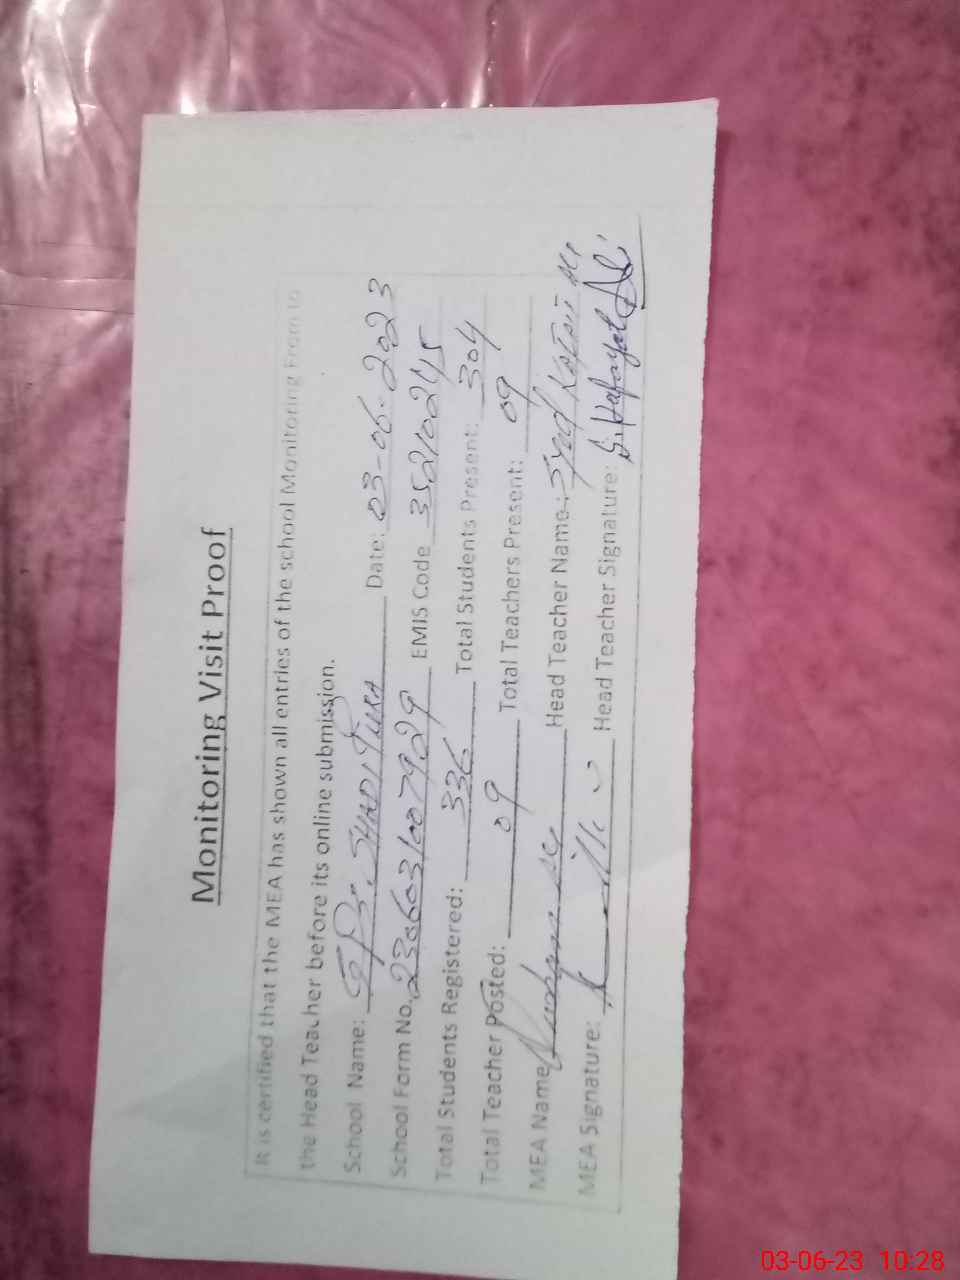 Monitoring Visit Proof
It is certified that the MEA has shown all entries of the school Monitoring From to
the Head Teacher before its online submission.
School Name: GPS. SHADI PURA Date: 03-06-2023
School Form No. 2306031007929 EMIS Code 35210245
Total Students Registered: 336 Total Students Present: 304
Total Teacher Posted: 09 Total Teachers Present: 09
MEA Name Head Teacher Name: Syed
MEA Signature: Head Teacher Signature:
03-06-23 10:28